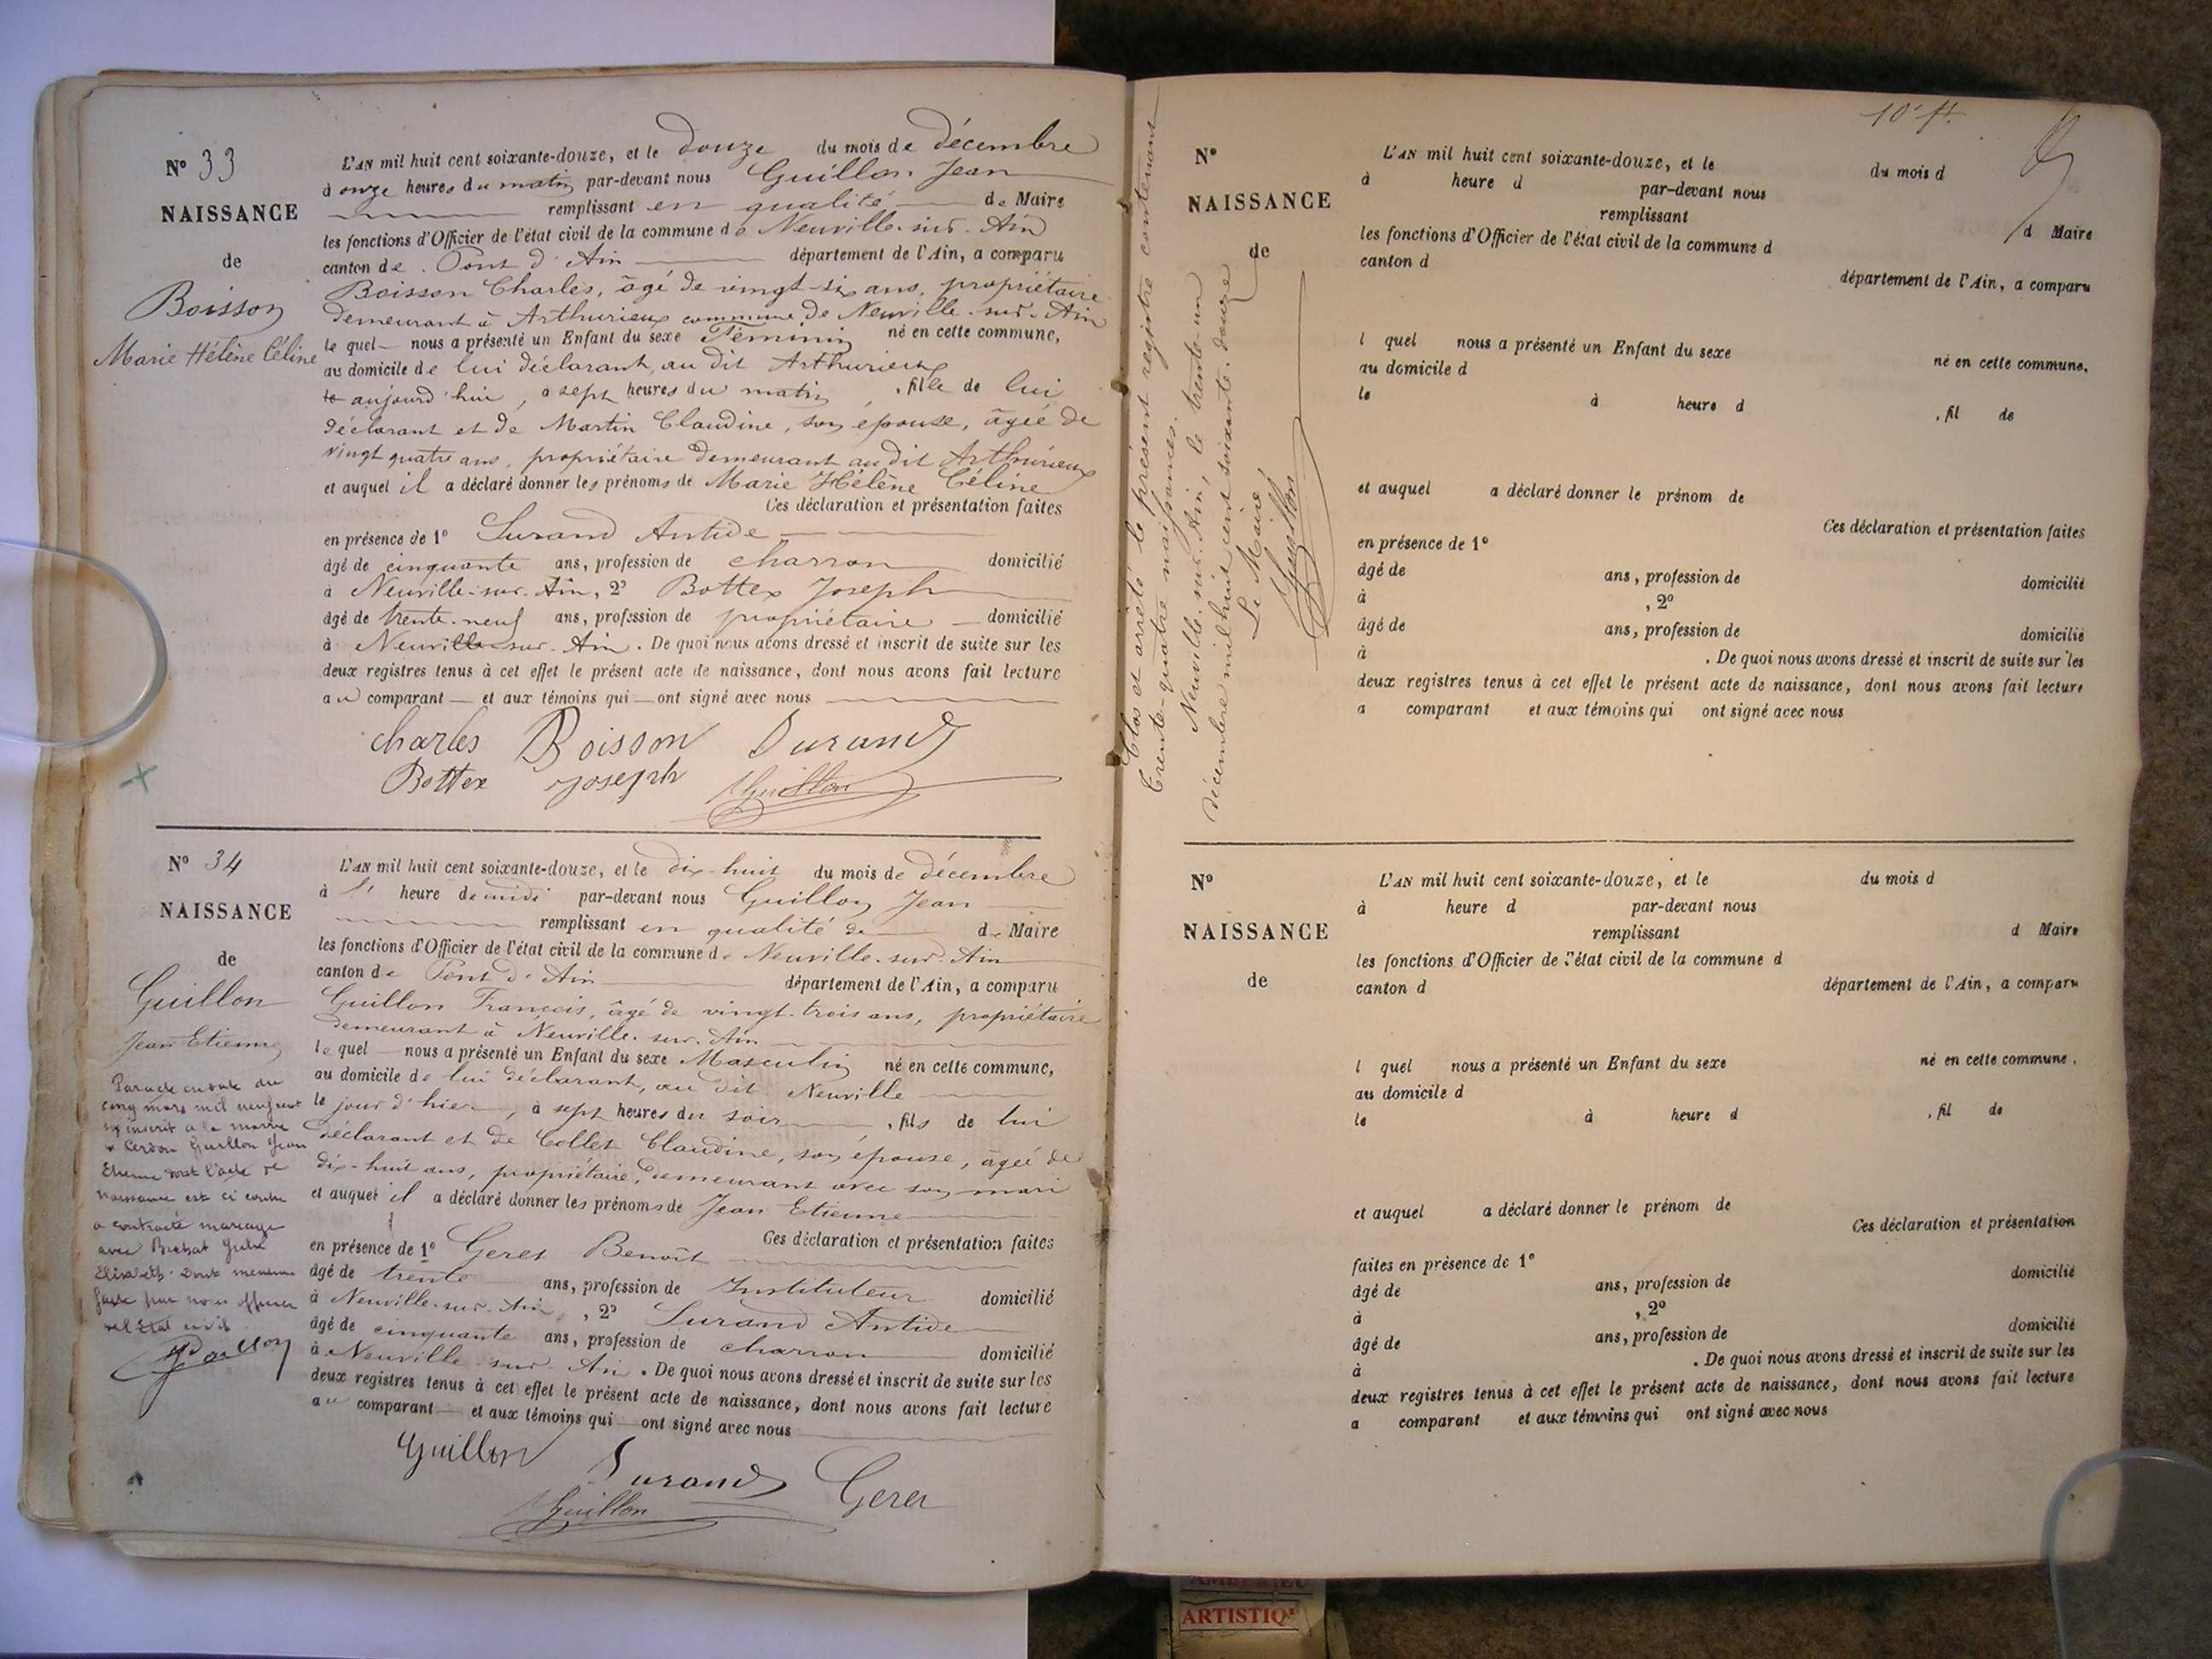 N° 33
NAISSANCE
de
Boisson
Marie Hélène Céline
L'AN mil huit cent soixante-douze, et le douze du mois de décembre
à onze heures du matin par-devant nous Guillon Jean
remplissant en qualité de Maire
les fonctions d'Officier de l'état civil de la commune de Neuville-sur-Ain
canton de Pont d'Ain département de l'Ain, a comparu
Boisson Charles, âgé de vingt-six ans, propriétaire
demeurant à Arthurieux commune de Neuville-sur-Ain
lequel nous a présenté un Enfant du sexe Féminin né en cette commune,
au domicile de lui déclarant, au dit Arthurieux
le aujourd'hui, à sept heures du matin, fille de lui
déclarant et de Martin Claudine, son épouse, âgée de
vingt quatre ans, propriétaire demeurant au dit Arthurieux
et auquel il a déclaré donner les prénoms de Marie Hélène Céline
Ces déclaration et présentation faites
en présence de 1° Durand Antide
âgé de cinquante ans, profession de charron domicilié
à Neuville-sur-Ain, 2° Bottex Joseph
âgé de trente-neuf ans, profession de propriétaire domicilié
à Neuville-sur-Ain. De quoi nous avons dressé et inscrit de suite sur les
deux registres tenus à cet effet le présent acte de naissance, dont nous avons fait lecture
au comparant et aux témoins qui ont signé avec nous
charles Boisson Durand
Bottex joseph Guillon
N° 34
NAISSANCE
de
Guillon
Jean Etienne
Par acte en date du
cinq mars mil neuf cent
inscrit à la mairie
Cerdon Guillon Jean
Etienne dont l'acte de
naissance est ci contre
a contracté mariage
avec Julie
Elisabeth. Dont mention
faite par nous officier
de l'Etat civil
L'AN mil huit cent soixante-douze, et le dix-huit du mois de décembre
à l' heure de midi par-devant nous Guillon Jean
remplissant en qualité de de Maire
les fonctions d'Officier de l'état civil de la commune de Neuville-sur-Ain
canton de Pont d'Ain département de l'Ain, a comparu
Guillon François, âgé de vingt-trois ans, propriétaire
demeurant à Neuville-sur-Ain
lequel nous a présenté un Enfant du sexe Masculin né en cette commune,
au domicile de lui déclarant, au dit Neuville
le jour d'hier, à sept heures du soir, fils de lui
déclarant et de Collet Claudine, son épouse, âgée de
dix-huit ans, propriétaire, demeurant avec son mari
et auquel il a déclaré donner les prénoms de Jean Etienne
Ces déclaration et présentation faites
en présence de 1° Geret Benoît
âgé de trente ans, profession de Instituteur domicilié
à Neuville-sur-Ain, 2° Durand Antide
âgé de cinquante ans, profession de charron domicilié
à Neuville-sur-Ain. De quoi nous avons dressé et inscrit de suite sur les
deux registres tenus à cet effet le présent acte de naissance, dont nous avons fait lecture
au comparant et aux témoins qui ont signé avec nous
Guillon Durand Geret
Guillon
Clos et arrêté le présent registre contenant
trente-quatre naissances.
Neuville-sur-Ain, le trente-un
décembre mil huit cent soixante-douze
Le Maire
Guillon
N°
NAISSANCE
de
L'AN mil huit cent soixante-douze, et le du mois d
à heure d par-devant nous
remplissant d Maire
les fonctions d'Officier de l'état civil de la commune d
canton d département de l'Ain, a comparu
l quel nous a présenté un Enfant du sexe né en cette commune,
au domicile d
le à heure d , fil de
et auquel a déclaré donner le prénom de
Ces déclaration et présentation faites
en présence de 1°
âgé de ans, profession de domicilié
à , 2°
âgé de ans, profession de domicilié
à . De quoi nous avons dressé et inscrit de suite sur les
deux registres tenus à cet effet le présent acte de naissance, dont nous avons fait lecture
a comparant et aux témoins qui ont signé avec nous
N°
NAISSANCE
de
L'AN mil huit cent soixante-douze, et le du mois d
à heure d par-devant nous
remplissant d Maire
les fonctions d'Officier de l'état civil de la commune d
canton d département de l'Ain, a comparu
l quel nous a présenté un Enfant du sexe né en cette commune,
au domicile d
le à heure d , fil de
et auquel a déclaré donner le prénom de
Ces déclaration et présentation
faites en présence de 1°
âgé de ans, profession de domicilié
à , 2°
âgé de ans, profession de domicilié
à . De quoi nous avons dressé et inscrit de suite sur les
deux registres tenus à cet effet le présent acte de naissance, dont nous avons fait lecture
a comparant et aux témoins qui ont signé avec nous
ARTISTIQ